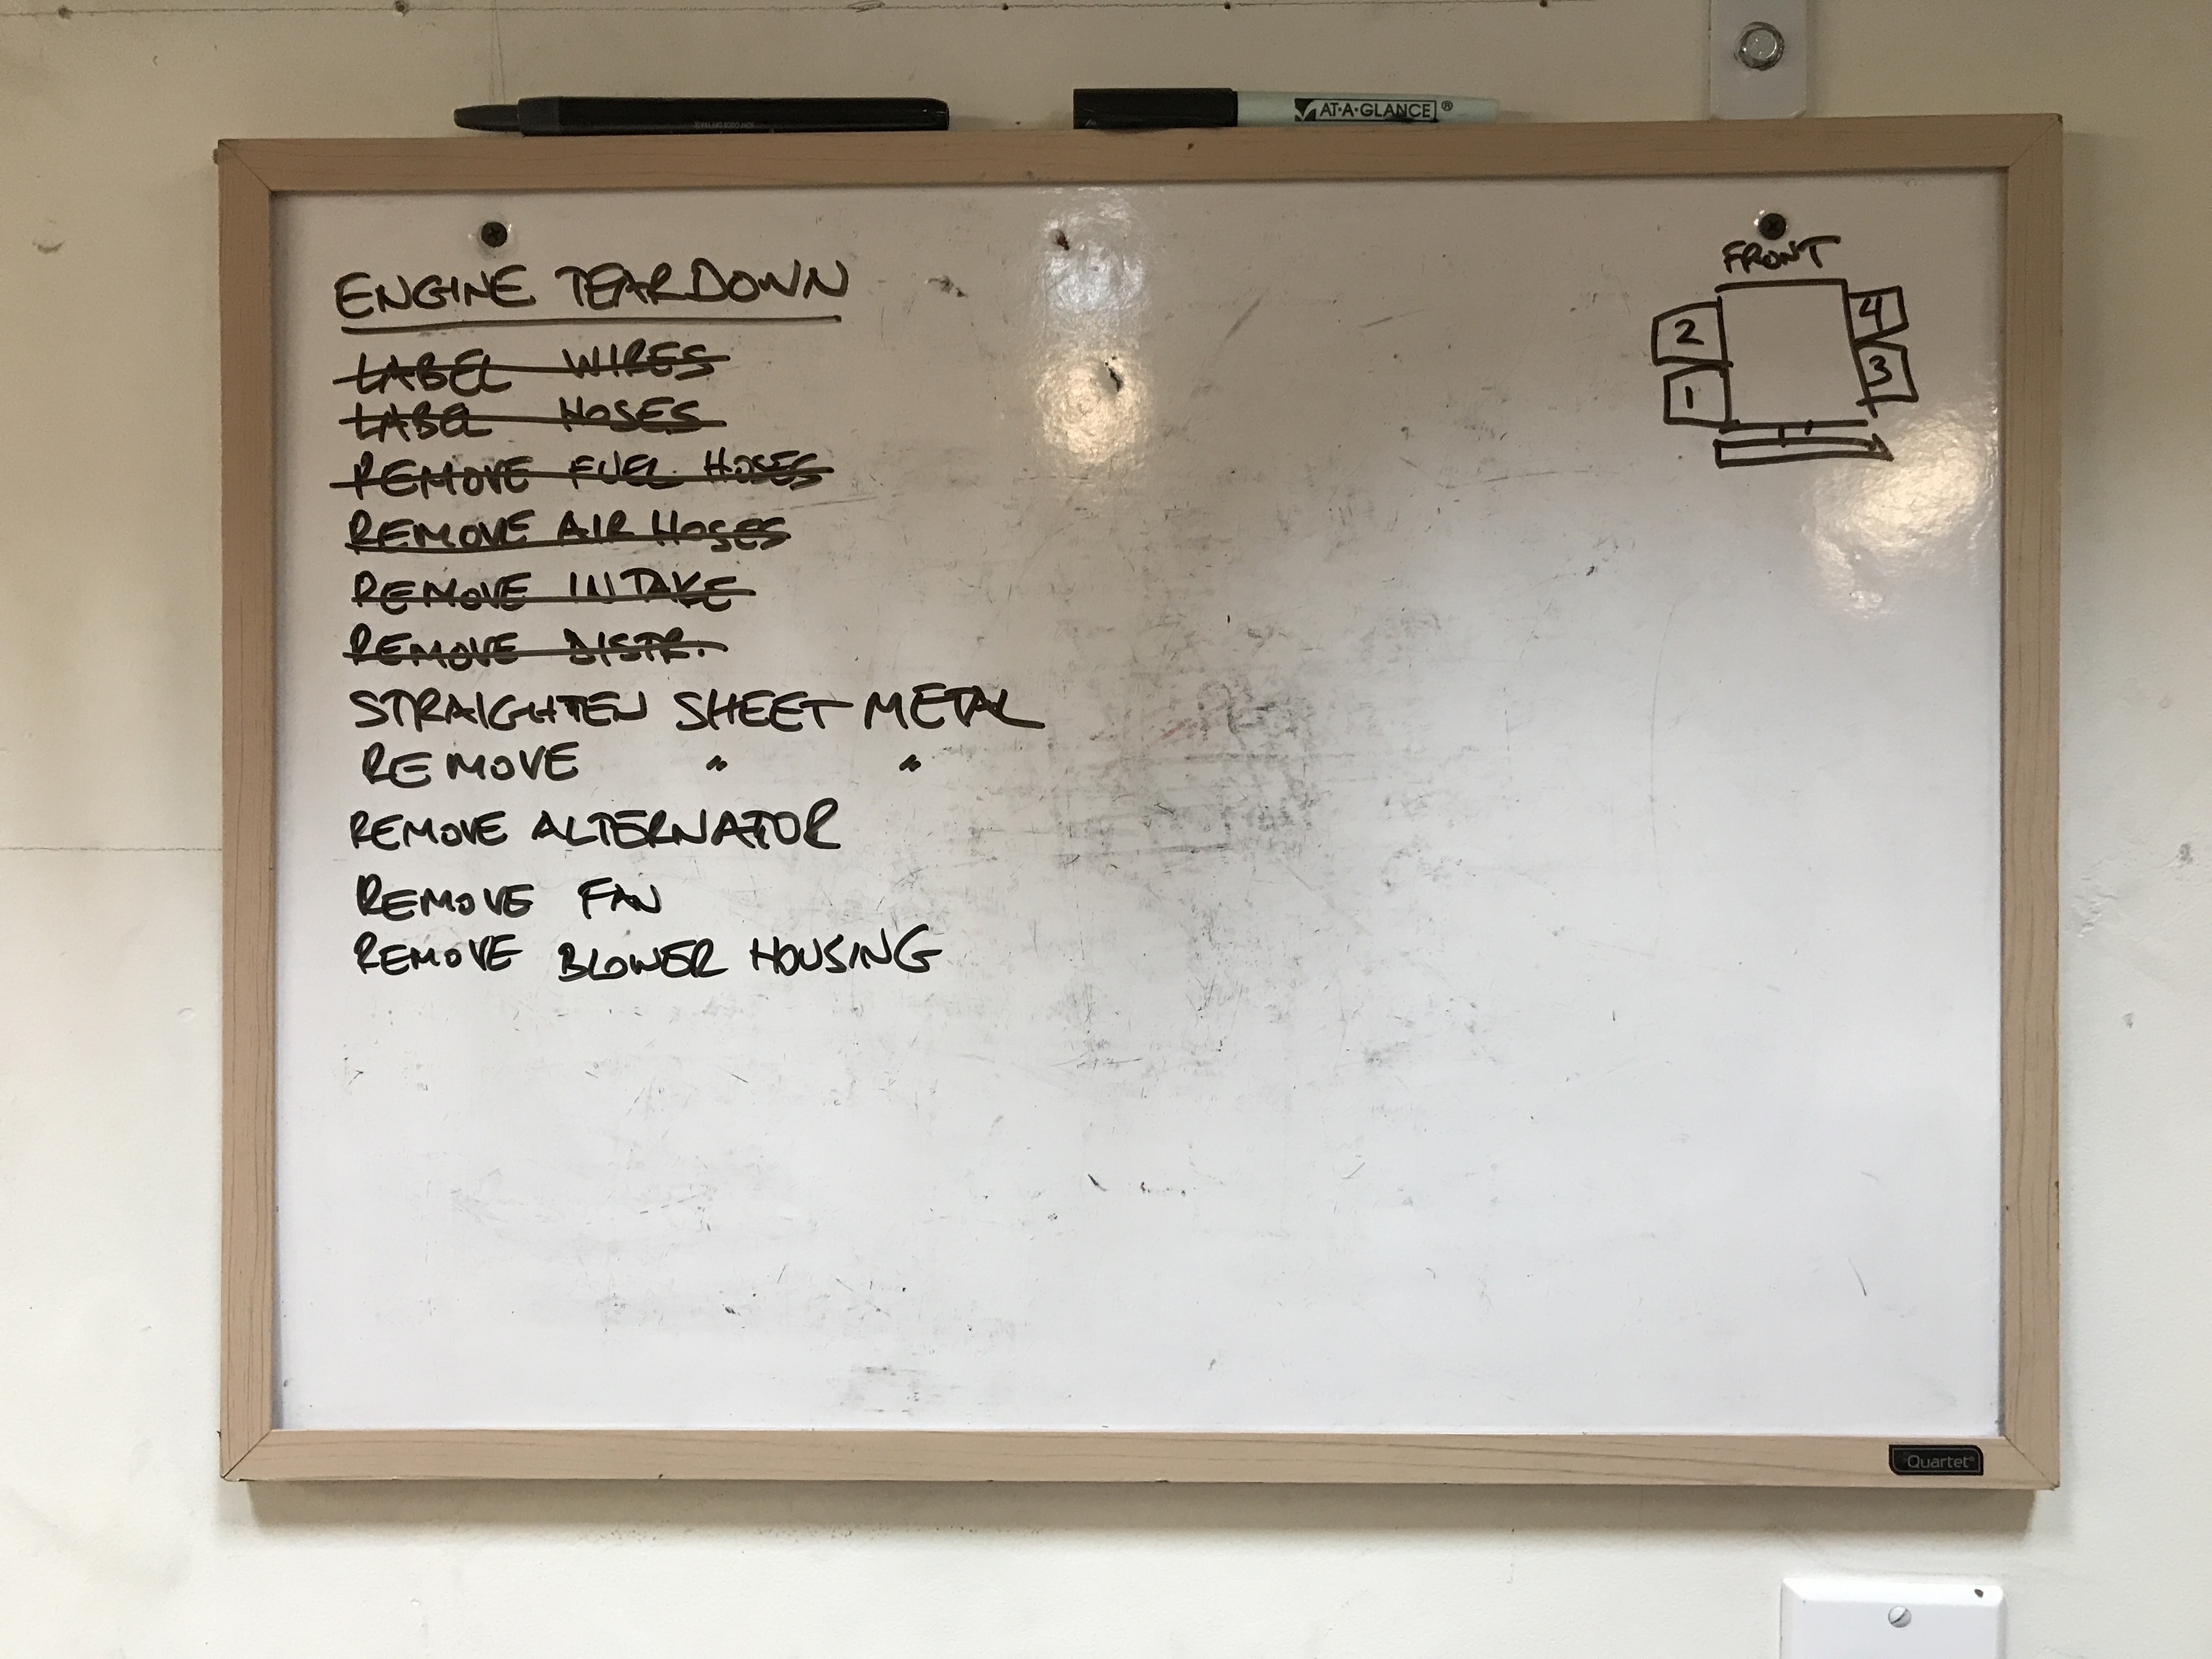 AT·A·GLANCE®
ENGINE TEARDOWN
LABEL WIRES
LABEL HOSES
REMOVE FUEL HOSES
REMOVE AIR HOSES
REMOVE INTAKE
REMOVE DISTR.
STRAIGHTEN SHEET METAL
REMOVE " "
REMOVE ALTERNATOR
REMOVE FAN
REMOVE BLOWER HOUSING
FRONT
2 4
1 3
Quartet